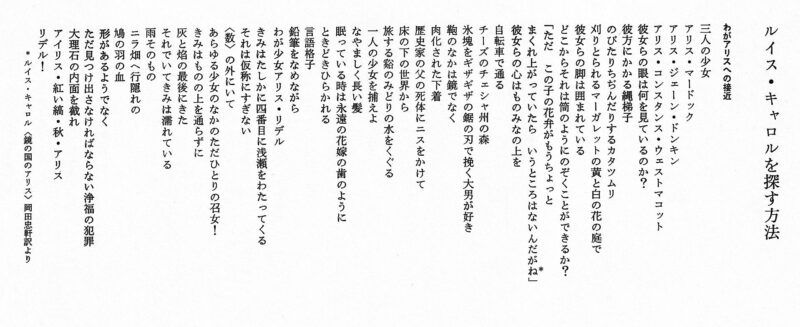 ルイス・キャロルを探す方法
わがアリスへの接近
三人の少女
アリス・マードック
アリス・ジェーン・ドンキン
アリス・コンスタンス・ウェストマコット
彼女らの眼は何を見ているのか?
彼方にかかる縄梯子
のびたりちぢんだりするカタツムリ
刈りとられるマーガレットの黄と白の花の庭で
彼女らの脚は囲まれている
どこからそれは筒のようにのぞくことができるか?
「ただ この子の花弁がもうちょっと
まくれ上がっていたら いうところはないんだがね」*
彼女らの心はものみなの上を
自転車で通る
チーズのチェシャ州の森
氷塊をギザギザの鋸の刃で挽く大男が好き
鞄のなかは鏡でなく
肉化された下着
歴史家の父の死体にニスをかけて
床の下の世界から
旅する谿のみどりの水をくぐる
一人の少女を捕えよ
なやましく長い髪
眠っている時は永遠の花嫁の歯のように
ときどきひらかれる
言語格子
鉛筆をなめながら
わが少女アリス・リデル
きみはたしかに四番目に浅瀬をわたってくる
それは仮称にすぎない
〈数〉の外にいて
あらゆる少女のなかのただひとりの召女!
きみはものの上を通らずに
灰と焰の最後にきた
それでいてきみは濡れている
雨そのもの
ニラ畑へ行隠れの
鳩の羽の血
形があるようでなく
ただ見つけ出さなければならない浄福の犯罪
大理石の内面を截れ
アイリス・紅い縞・秋・アリス
リデル!
*ルイス・キャロル〈鏡の国のアリス〉岡田忠軒訳より